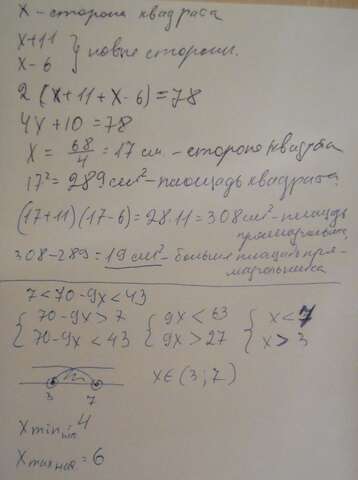 x - сторона квадрата
x+11 } новые стороны.
x-6
2 (x+11+x-6)=78
4x+10=78
x = 68/4 = 17 см - сторона квадрата
17²=289 см² - площадь квадрата.
(17+11)(17-6)=28·11=308 см² - площадь
прямоугольника
308-289=19 см² - больше площадь пря-
моугольника
7<70-9x<43
{ 70-9x>7 { 9x<63 { x<7
{ 70-9x<43 { 9x>27 { x>3
3 7 x∈(3;7)
x min = 4
x max = 6